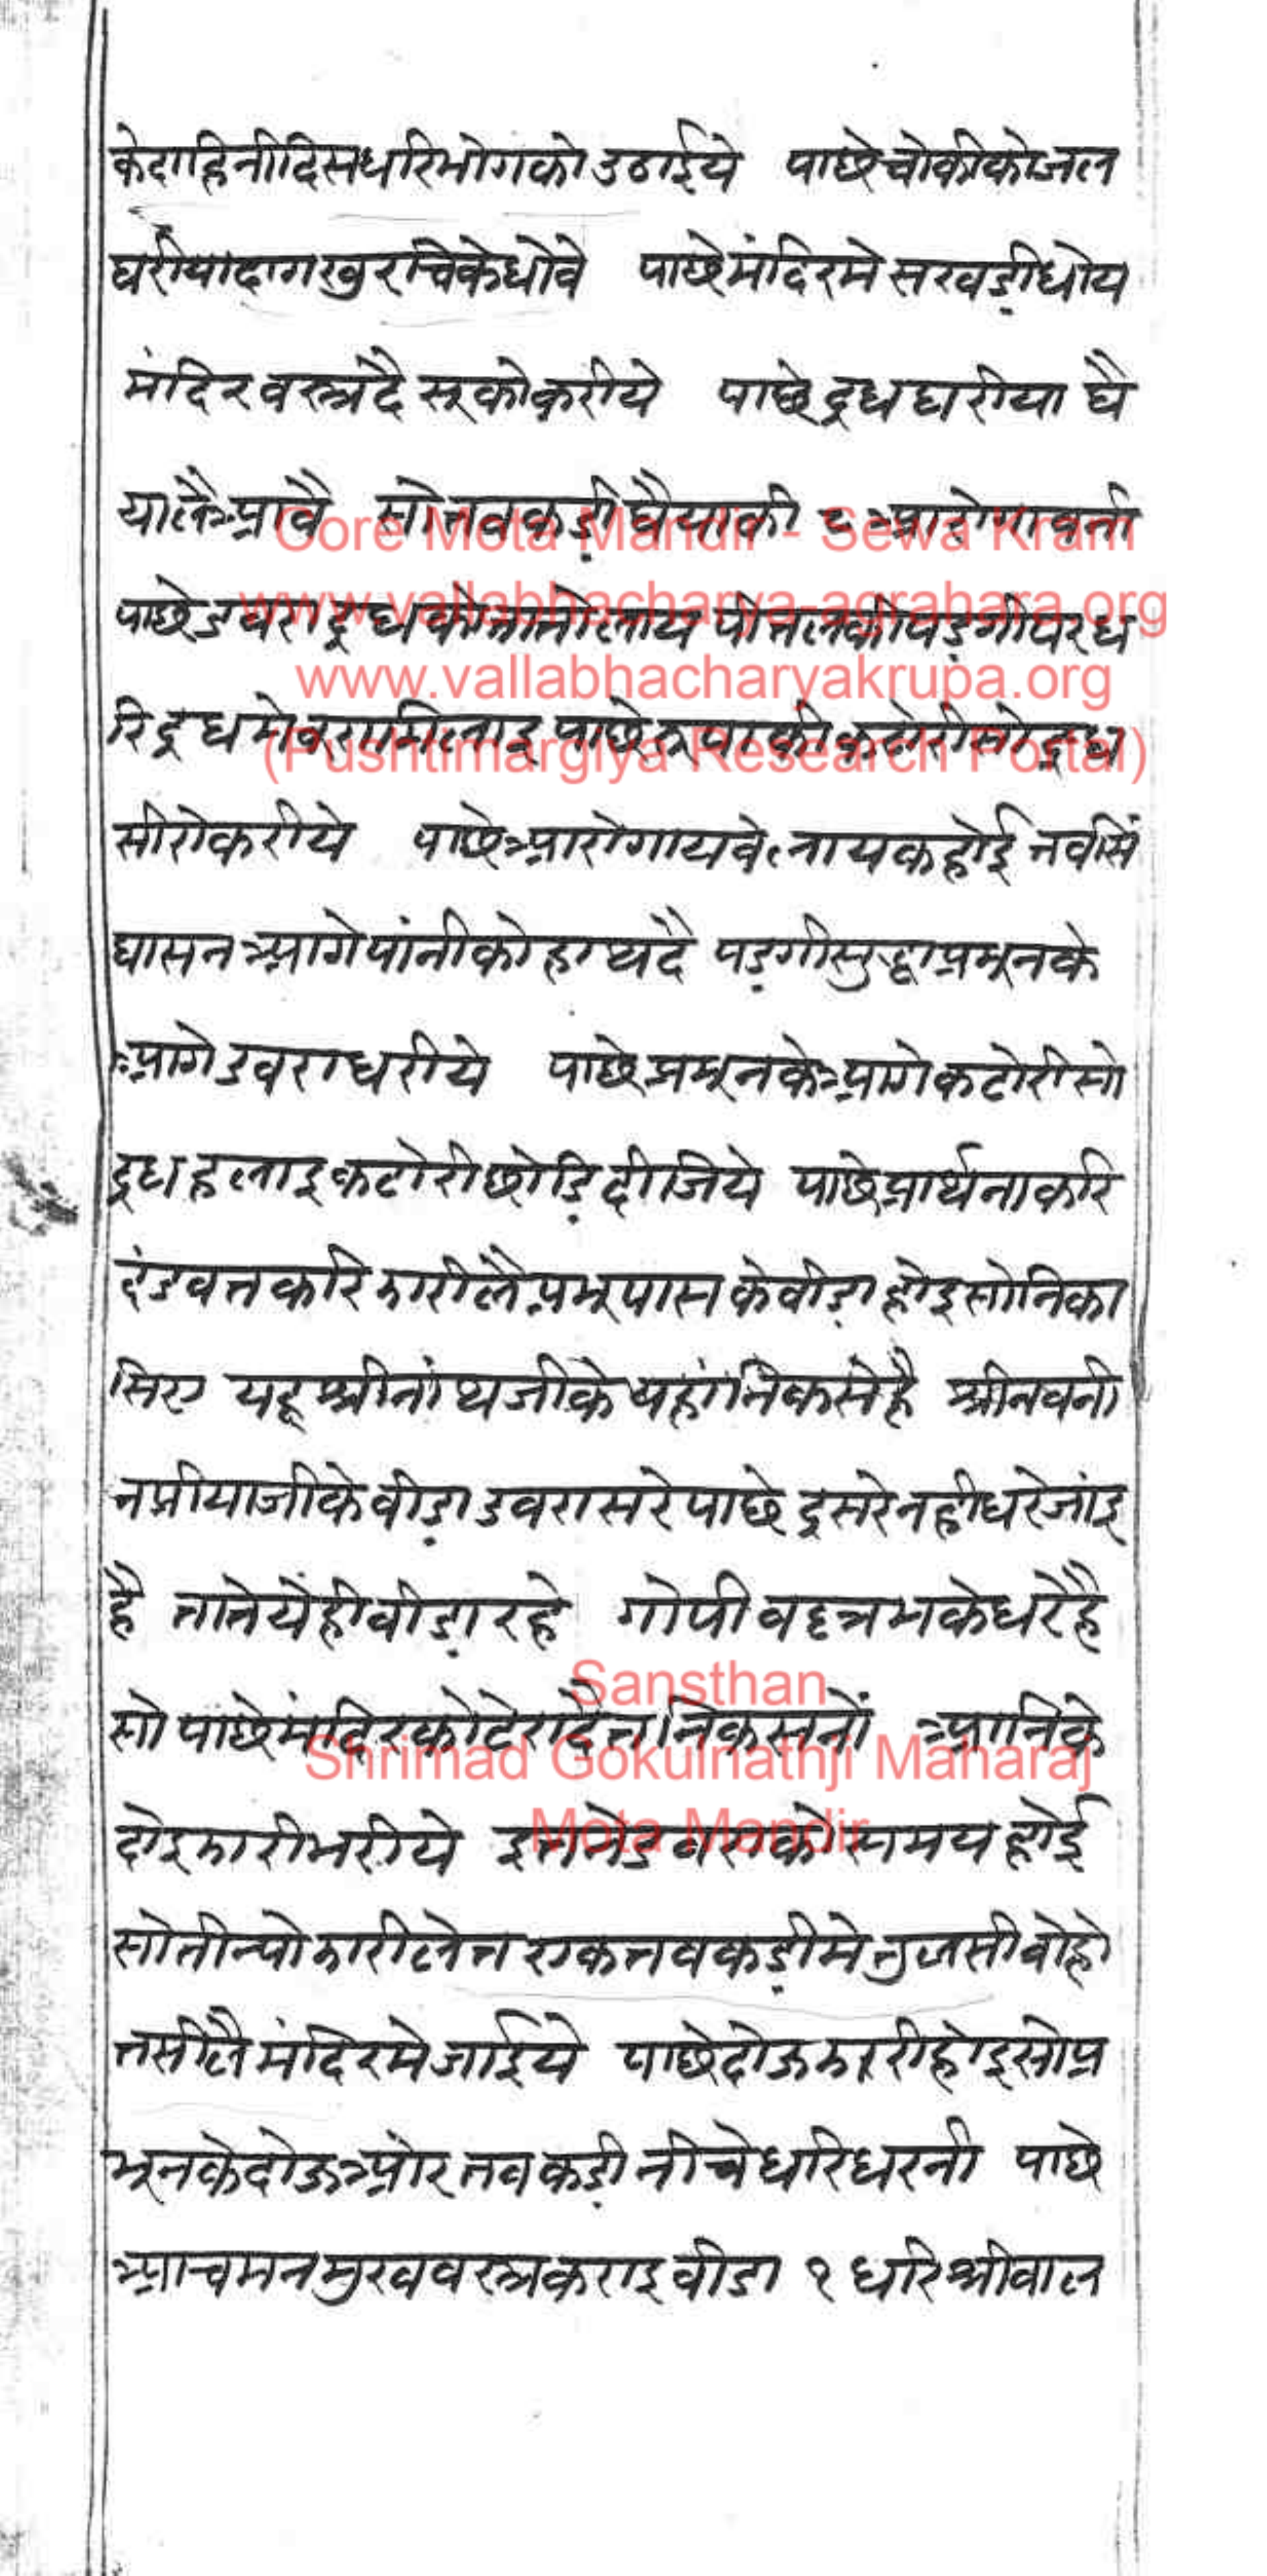 केदाहिनीदिसधरिभोगकोउठाईये पाछेचोकीकोजल
घरीयादागखुरचिकेधोवे पाछेमंदिरमेसखडीधोय
मंदिरवस्त्रदैसूकोकरीये पाछेदूधघरीया घै
यालैआवै सोतवकडीघैयाकी ८ आरोगावनी
पाछेडवरादूधकोतातोलाय पीतलकीपडगीपरध
रिदूधमेबूरामिलाइ पाछेरूपाकीकटोरीसोदूध
सीरोकरीये पाछेआरोगायवेलायकहोई तवसिं
घासनआगेपांनीकोहाथदै पडगीसुद्धाप्रभूनके
आगेडवराधरीये पाछेप्रभूनकेआगेकटोरीसो
दूधहलाइकटोरीछोडिदीजिये पाछेप्रार्थनाकरि
दंडवतकरिझारीलैप्रभूपासकेवीडाहोइसोनिका
सिए यहश्रीनांथजीकेयहांनिकसेहै श्रीनवनी
तप्रीयाजीकेवीडाडवरासरेपाछेदूसरेनहीधरेजांइ
है तातेयेहीवीडारहे गोपीवल्लभकेधरेहै
सो पाछेमंदिरकोटेरादैतनिकसनों आनिके
दोइझारीभरीये इतनेडवराकोसमयहोई
सोतीन्योझारीलेतएकतवकडीमेतुलसीवोहो
तसीलैमंदिरमेजाईये पाछेदोऊझारीहोइसोप्र
भूनकेदोऊओरतवकडीनीचेधरिधरनी पाछे
आचमनमुखवस्त्रकराइवीडा १ धरिश्रीवाल
Gore Mota Mandir - Sewa Kram
www.vallabhacharya-agrahara.org
www.vallabhacharyakrupa.org
(Pushtimargiya Research Portal)
Sansthan
Shrimad Gokulnathji Maharaj
Mota Mandir